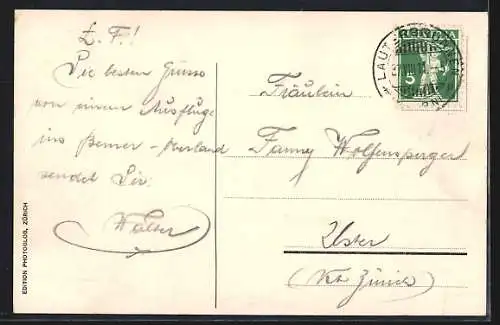 L. F.!
Die besten Grüsse
von einem Ausfluge
ins Berner-Oberland
sendet Dir:
Walter
Fräulein
Fanny Wolfensperger
Uster
(Kt. Zürich)
EDITION PHOTOGLOB, ZÜRICH
LAUTERBRUNNEN
5